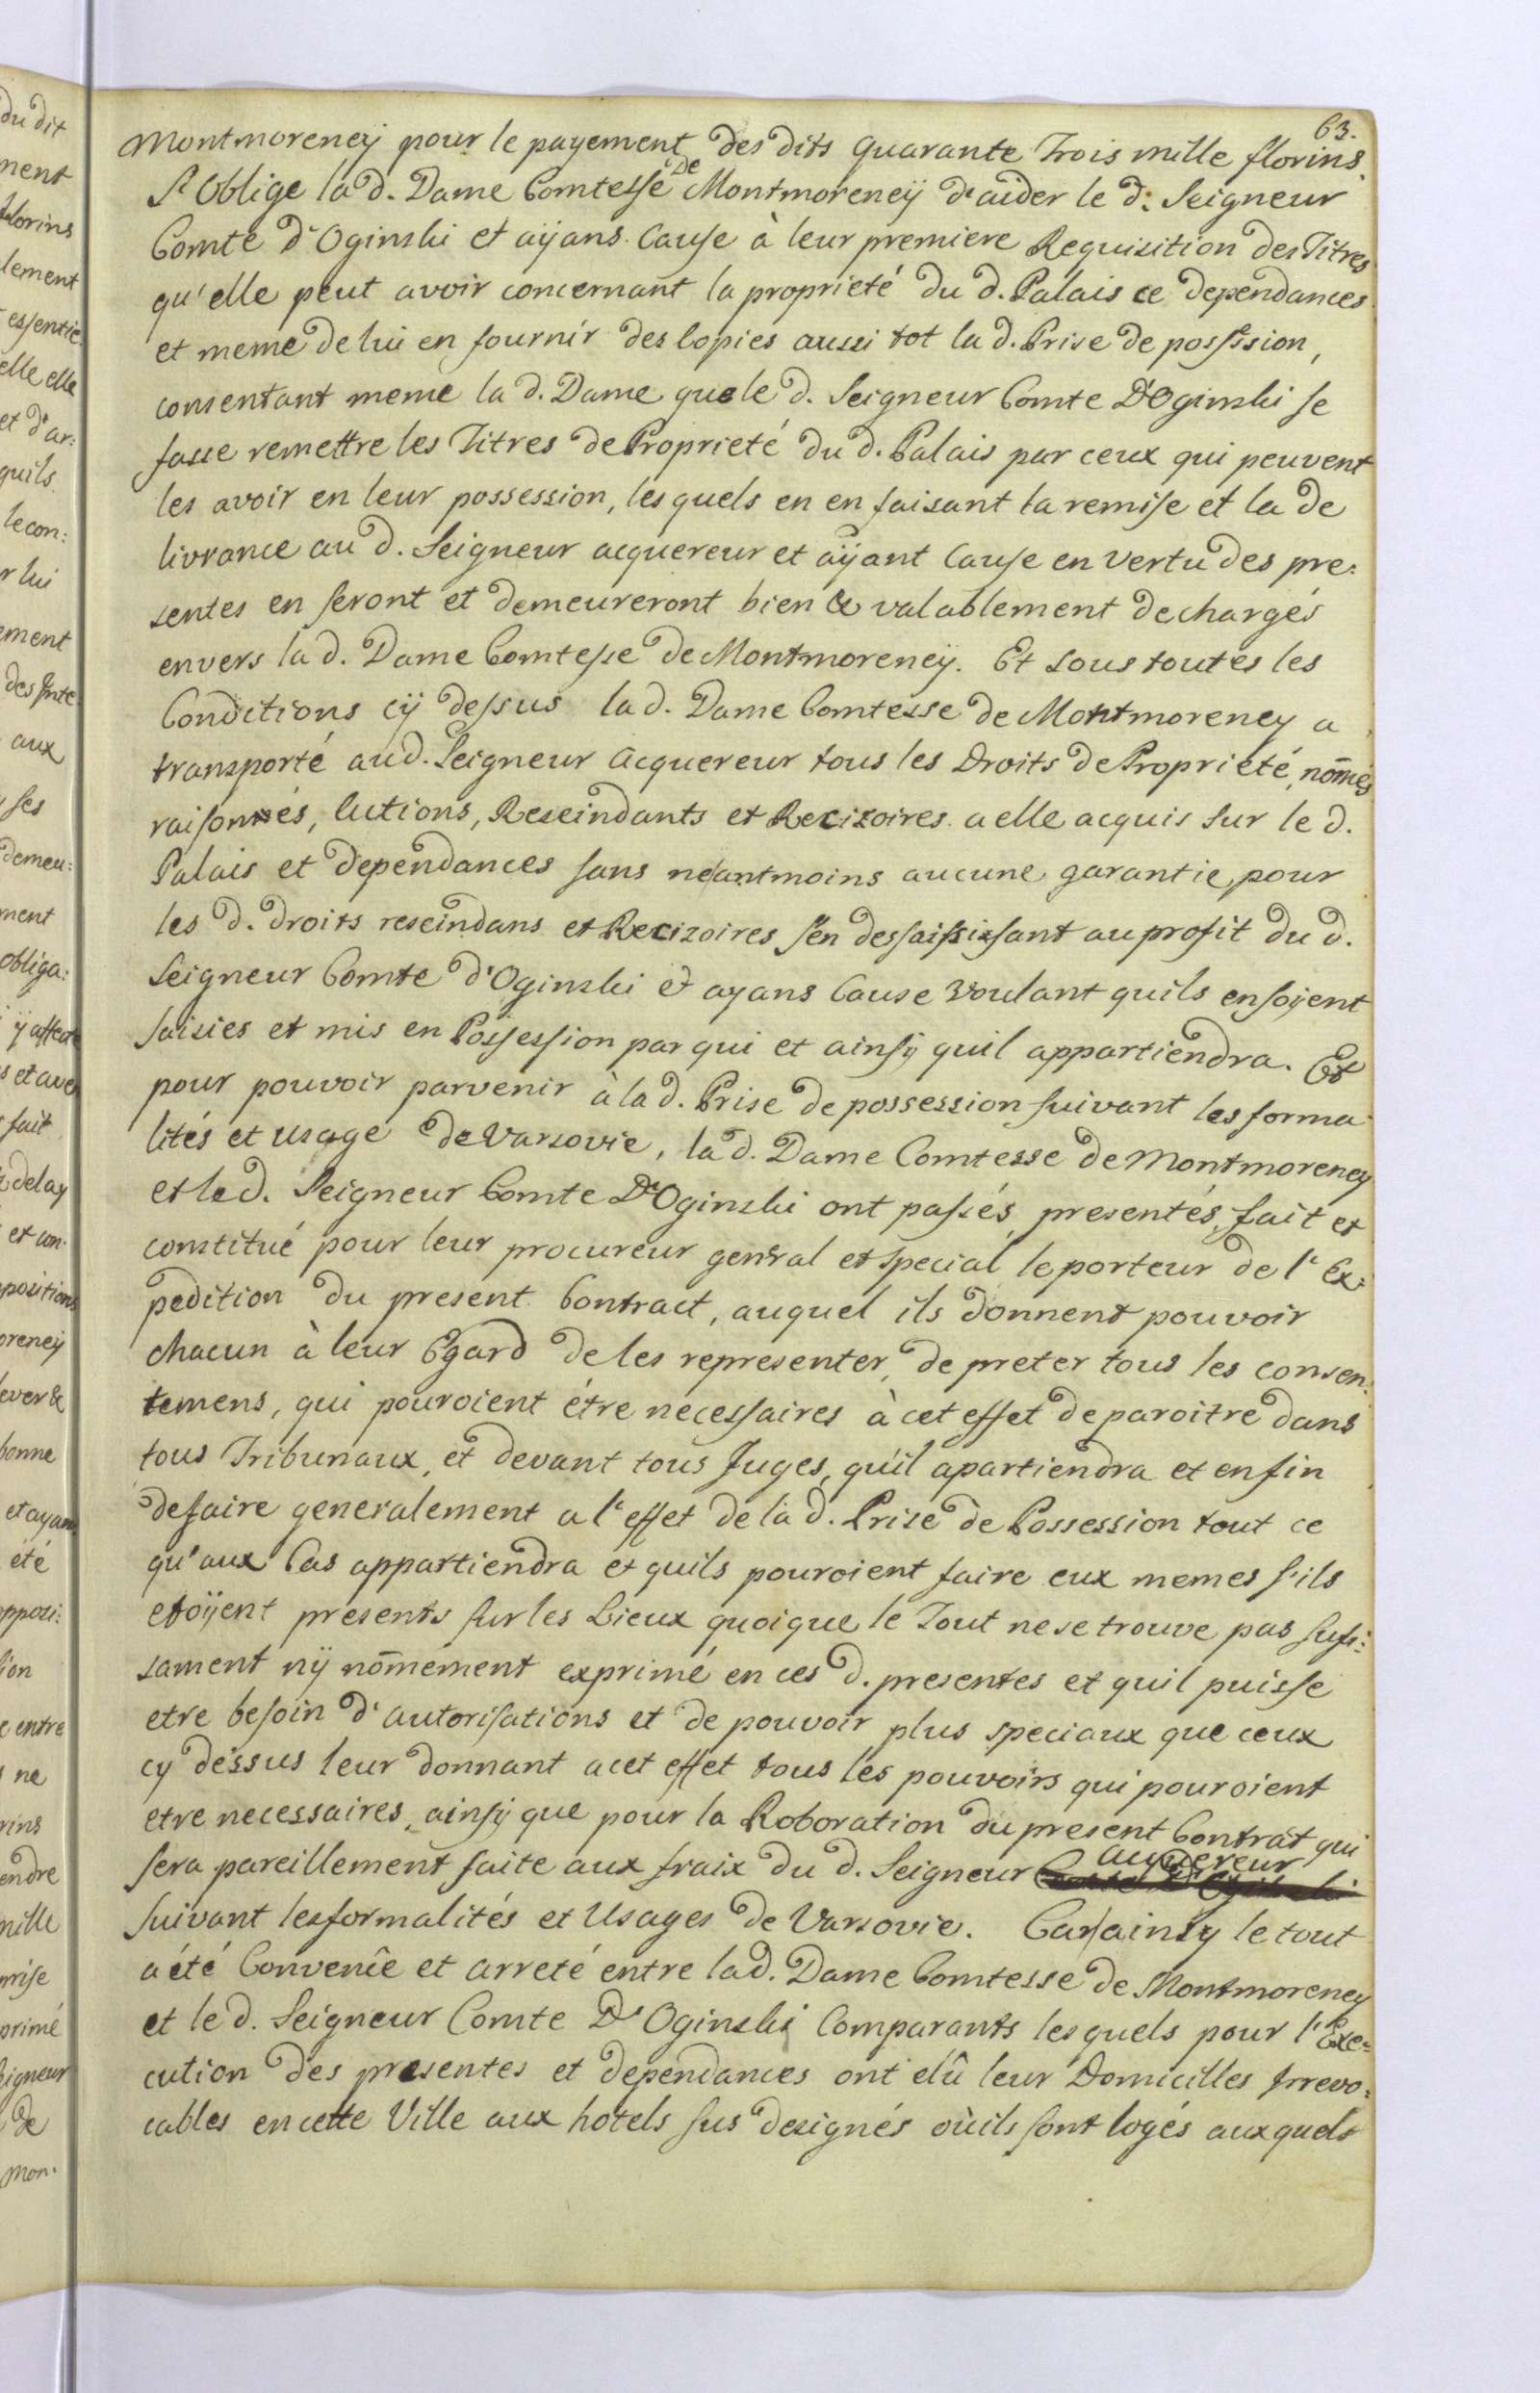 63.
Montmorencÿ pour le payement des dits quarante Trois mille florins.
S'Oblige la d. Dame Comtesse De Montmorencÿ d'aider le d. Seigneur
Comte d'Oginski et aÿans Cause à leur premiere Requisition des Titres
qu'elle peut avoir concernant la proprieté du d. Palais ce dependances
et meme de lui en fournir des Copies aussi tot la d. Prise de possssion,
consentant meme la d. Dame que le d. Seigneur Comte D'Oginski se
fasse remettre les Titres de Proprieté du d. Palais par ceux qui peuvent
les avoir en leur possession, les quels en en faisant la remise et la de
livrance au d. Seigneur acquereur et aÿant Cause en vertu des pre:
sentes en seront et demeureront bien & valablement dechargés
envers la d. Dame Comtesse de Montmorencÿ. Et sous toutes les
Conditions cÿ dessus la d. Dame Comtesse de Montmorency a
transporté au d. Seigneur acquereur tous les Droits de Proprieté, nom̃és
raisonnés, luctions, Rescindants et Recizoires a elle acquis sur le d.
Palais et dependances sans neantmoins aucune garantie, pour
les d. droits rescindans et Recizoires s'en dessaisissant au profit du d.
Seigneur Comte d'Oginski et ayans Cause voulant quils en soÿent
saisies et mis en Possession par qui et ainsÿ quil appartiendra. Et
pour pouvoir parvenir à la d. Prise de possession suivant les forma
lités et usage de Varsovie, la d. Dame Comtesse de Montmorency
et le d. Seigneur Comte D'Oginski ont passés, presentés, fait et
constitué pour leur procureur general et special le porteur de l'Ex:
pedition du present Contract, auquel ils donnent pouvoir
chacun à leur Egard de les representer, de preter tous les consen:
temens, qui pouroient étre necessaires à cet effet de paroitre dans
tous Tribunaux, et devant tous Juges, qu'il apartiendra et enfin
de faire generalement a l'effet de la d. Prise de Possession tout ce
qu'aux Cas appartiendra et quils pouroient faire eux memes s'ils
etoÿent presents sur les Lieux quoique le Tout ne se trouve pas sufi:
sament nÿ nom̃ement exprimé en ces d. presentes et quil puisse
etre besoin d'autorisations et de pouvoir plus speciaux que ceux
cy dessus leur donnant a cet effet tous les pouvoirs qui pouroient
etre necessaires, ainsÿ que pour la Roboration du present Contrat qui
sera pareillement faite aux fraix du d. Seigneur acquereur
suivant les formalités et Usages de Varsovie. Car ainsy le tout
a été Convenüe et arreté entre la d. Dame Comtesse de Montmorency
et le d. Seigneur Comte D'Oginski Comparants lesquels pour l'Exe:
cution des presentes et dependances ont elû leur Domicilles Irrevo:
cables en cette Ville aux hotels sus designés où ils sont logés aux quels
du dit
ment
florins
lement
essentie
elle elle
et d'ar:
quils
le con:
r lui
ement
des Inte
aux
ses
demeu:
ment
obliga:
ÿ affecte
s et avec
fait
delay
et con
positions
oreneÿ
ever &
bonne
et ayans
été
opposi:
ion
e entre
ne
rins
endre
mille
prise
primé
eigneur
de
Mon: